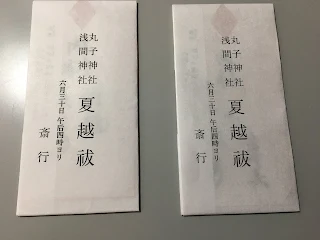 丸子神社
浅間神社
夏越祓
六月三十日午后四時ヨリ
斎行
丸子神社
浅間神社
夏越祓
六月三十日午后四時ヨリ
斎行